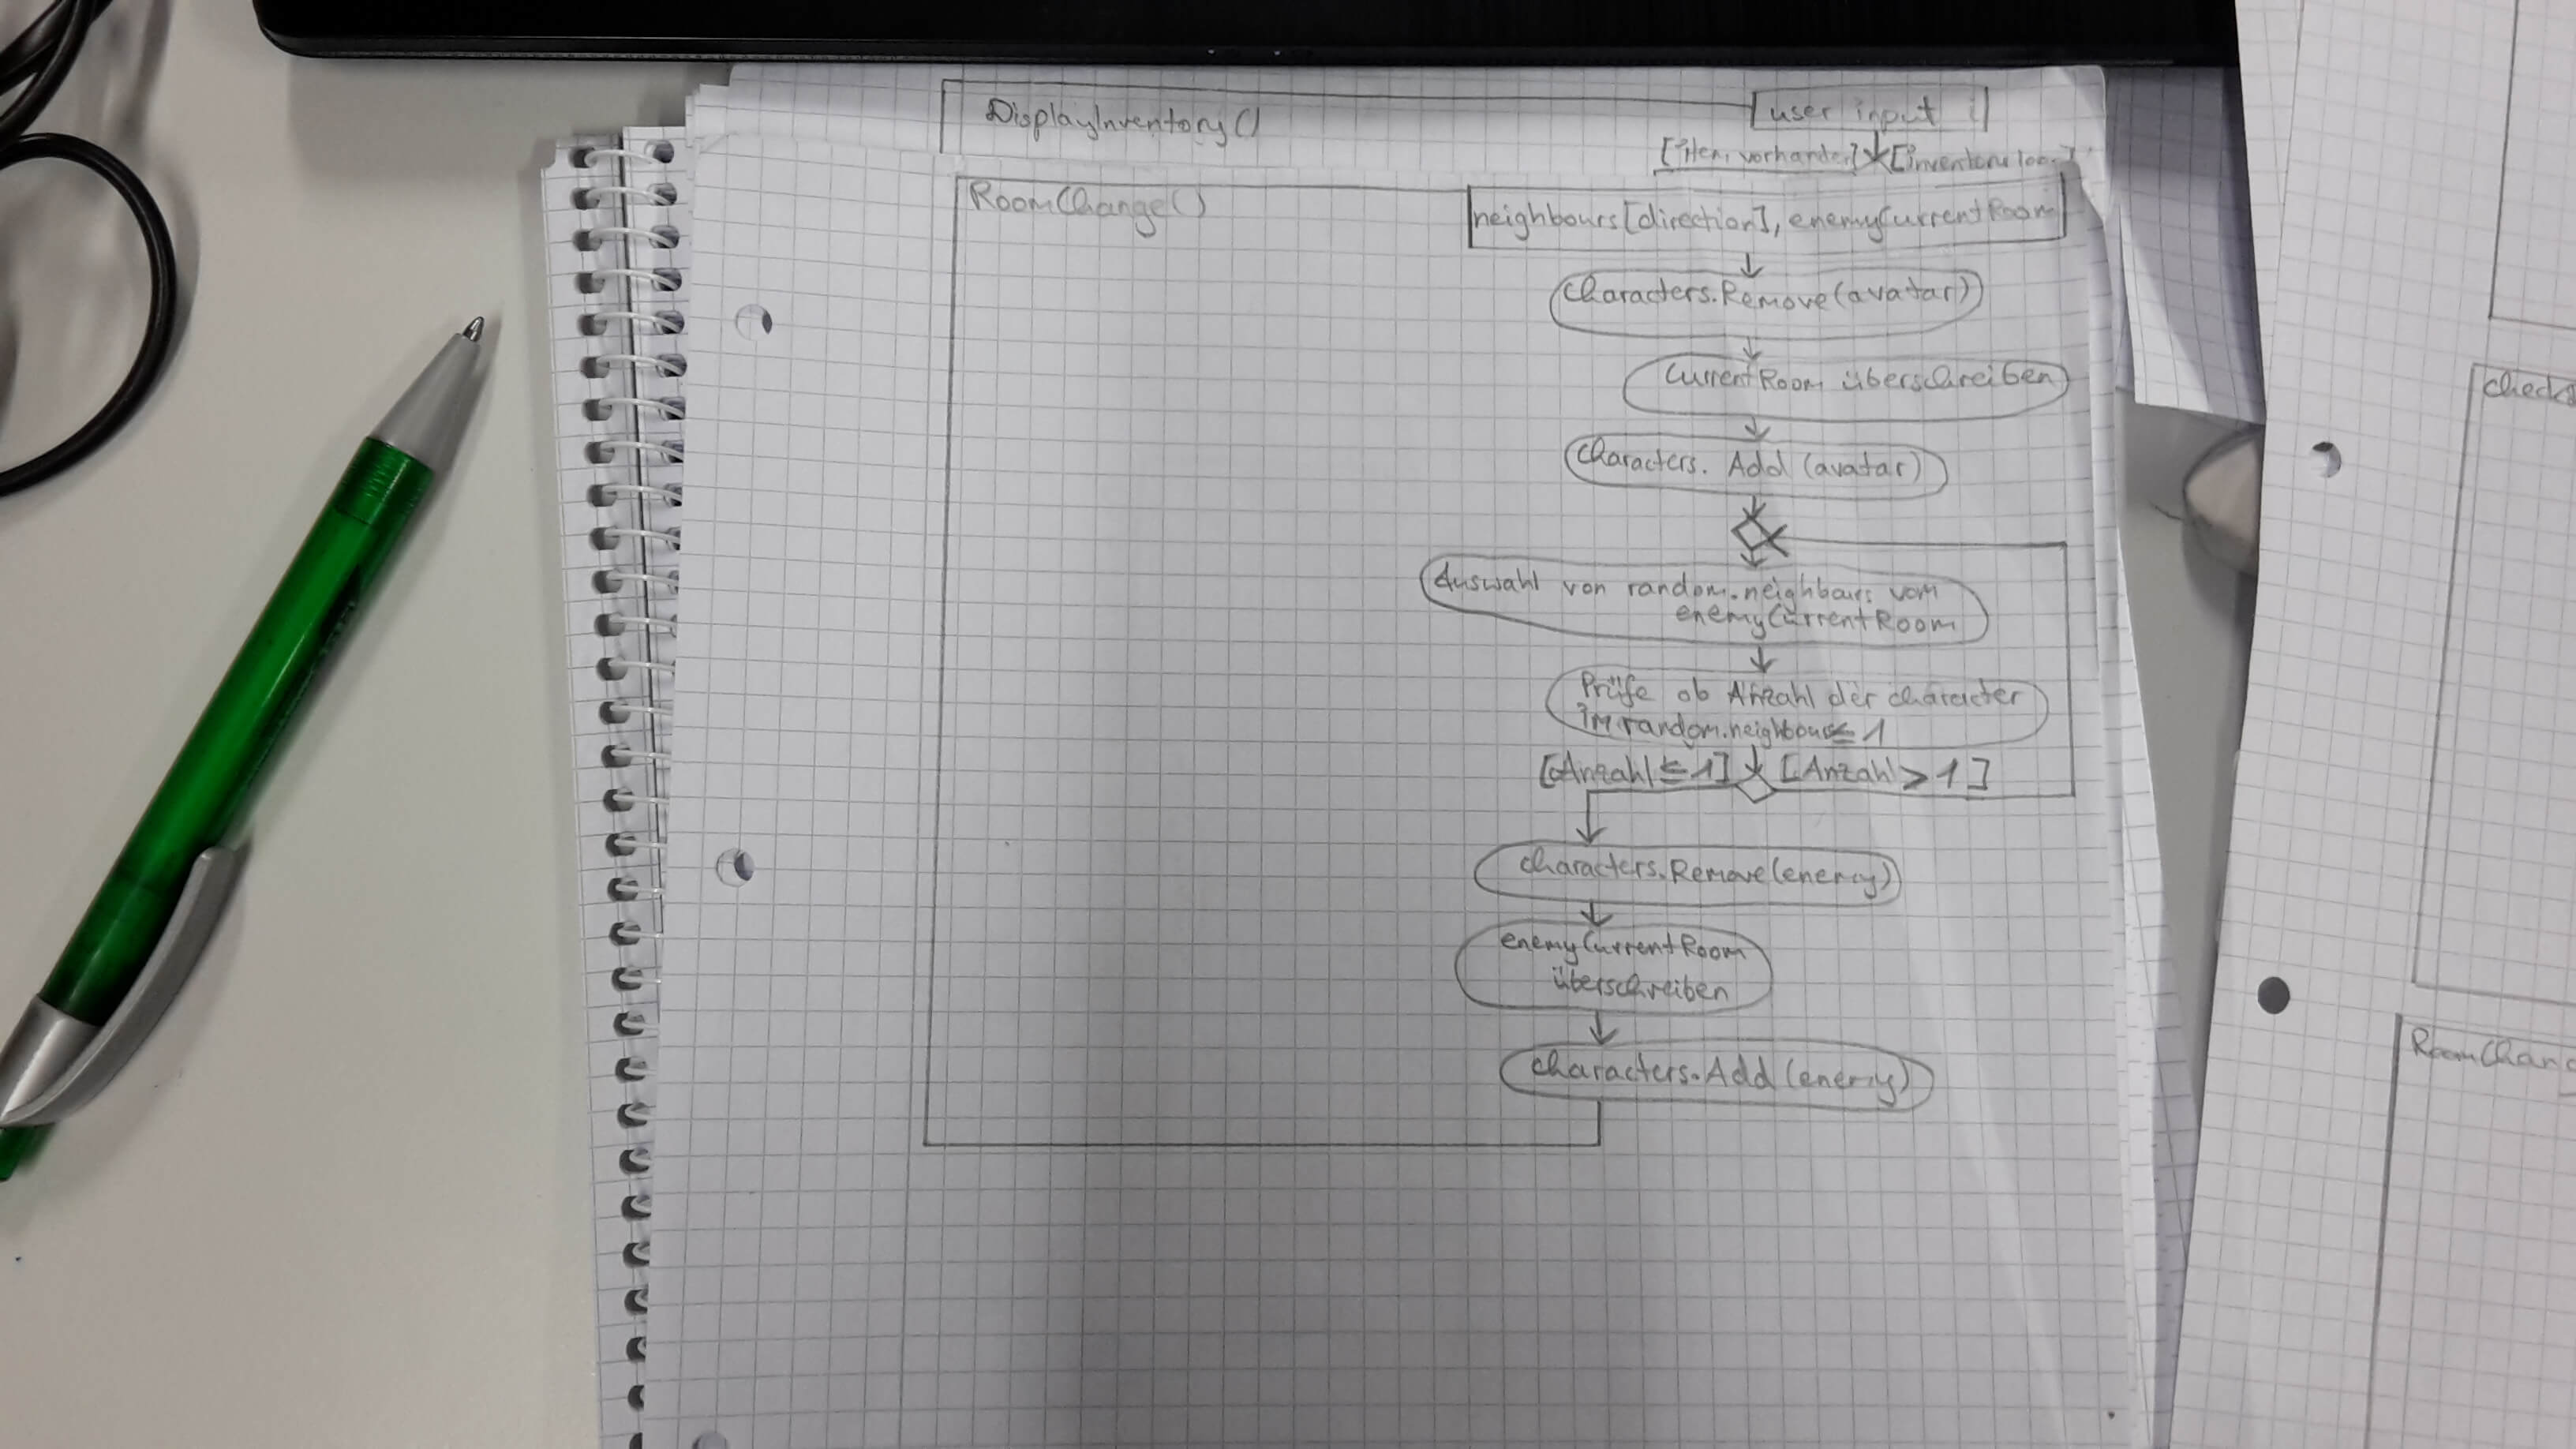 DisplayInventory()
user input
[item vorhanden] [inventory
RoomChange()
neighbours[direction], enemyCurrentRoom
characters.Remove(avatar)
CurrentRoom überschreiben
characters. Add (avatar)
Auswahl von random.neighbours vom
enemyCurrentRoom
Prüfe ob Anzahl der character
im random.neighbours ≤ 1
[Anzahl ≤ 1] [Anzahl > 1]
characters.Remove(enemy)
enemyCurrentRoom
überschreiben
characters.Add (enemy)
Check
RoomChang